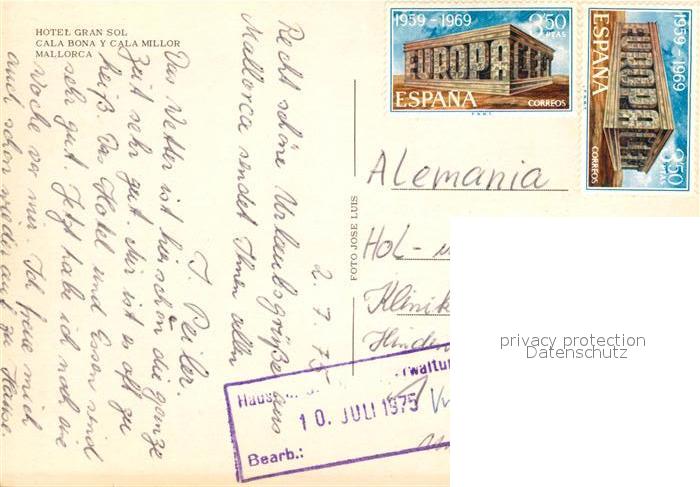 HOTEL GRAN SOL
CALA BONA Y CALA MILLOR
MALLORCA
2.7.75
Recht schöne Urlaubsgrüße aus
Mallorca sendet Ihnen allen
I. Peiler.
Das Wetter ist hier schon die ganze
Zeit sehr gut. Mir ist es oft zu
heiß. Das Hotel und Essen sind
sehr gut. Jetzt habe ich noch eine
Woche vor mir. Ich freue mich
auch schon wieder auf zu Hause.
FOTO JOSE LUIS
1959-1969
3'50
PTAS
EUROPA CEPT
ESPAÑA
CORREOS
1959-1969
3'50
PTAS
EUROPA
ESPAÑA
CORREOS
Alemania
Hol-
Klinik
Hinden
Haus
rwaltu
10. JULI 1975
Bearb.:
privacy protection
Datenschutz